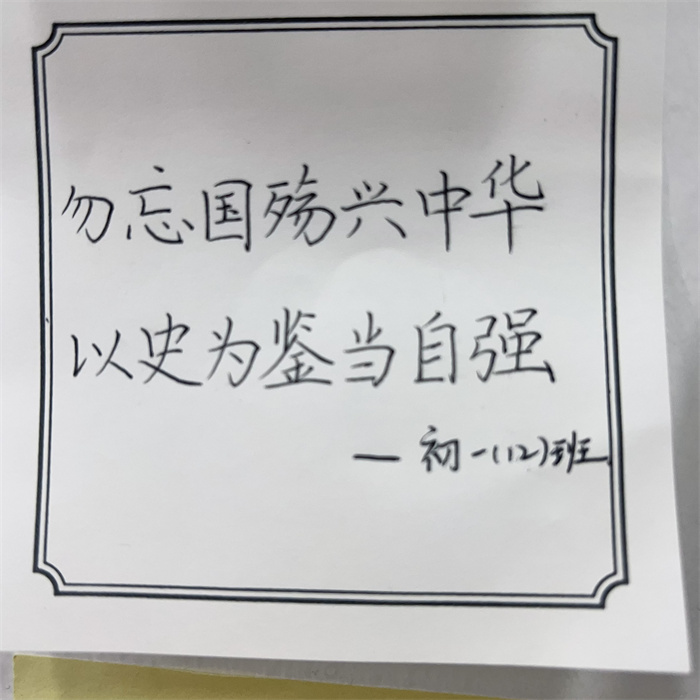 勿忘国殇兴中华
以史为鉴当自强
— 初一(12)班